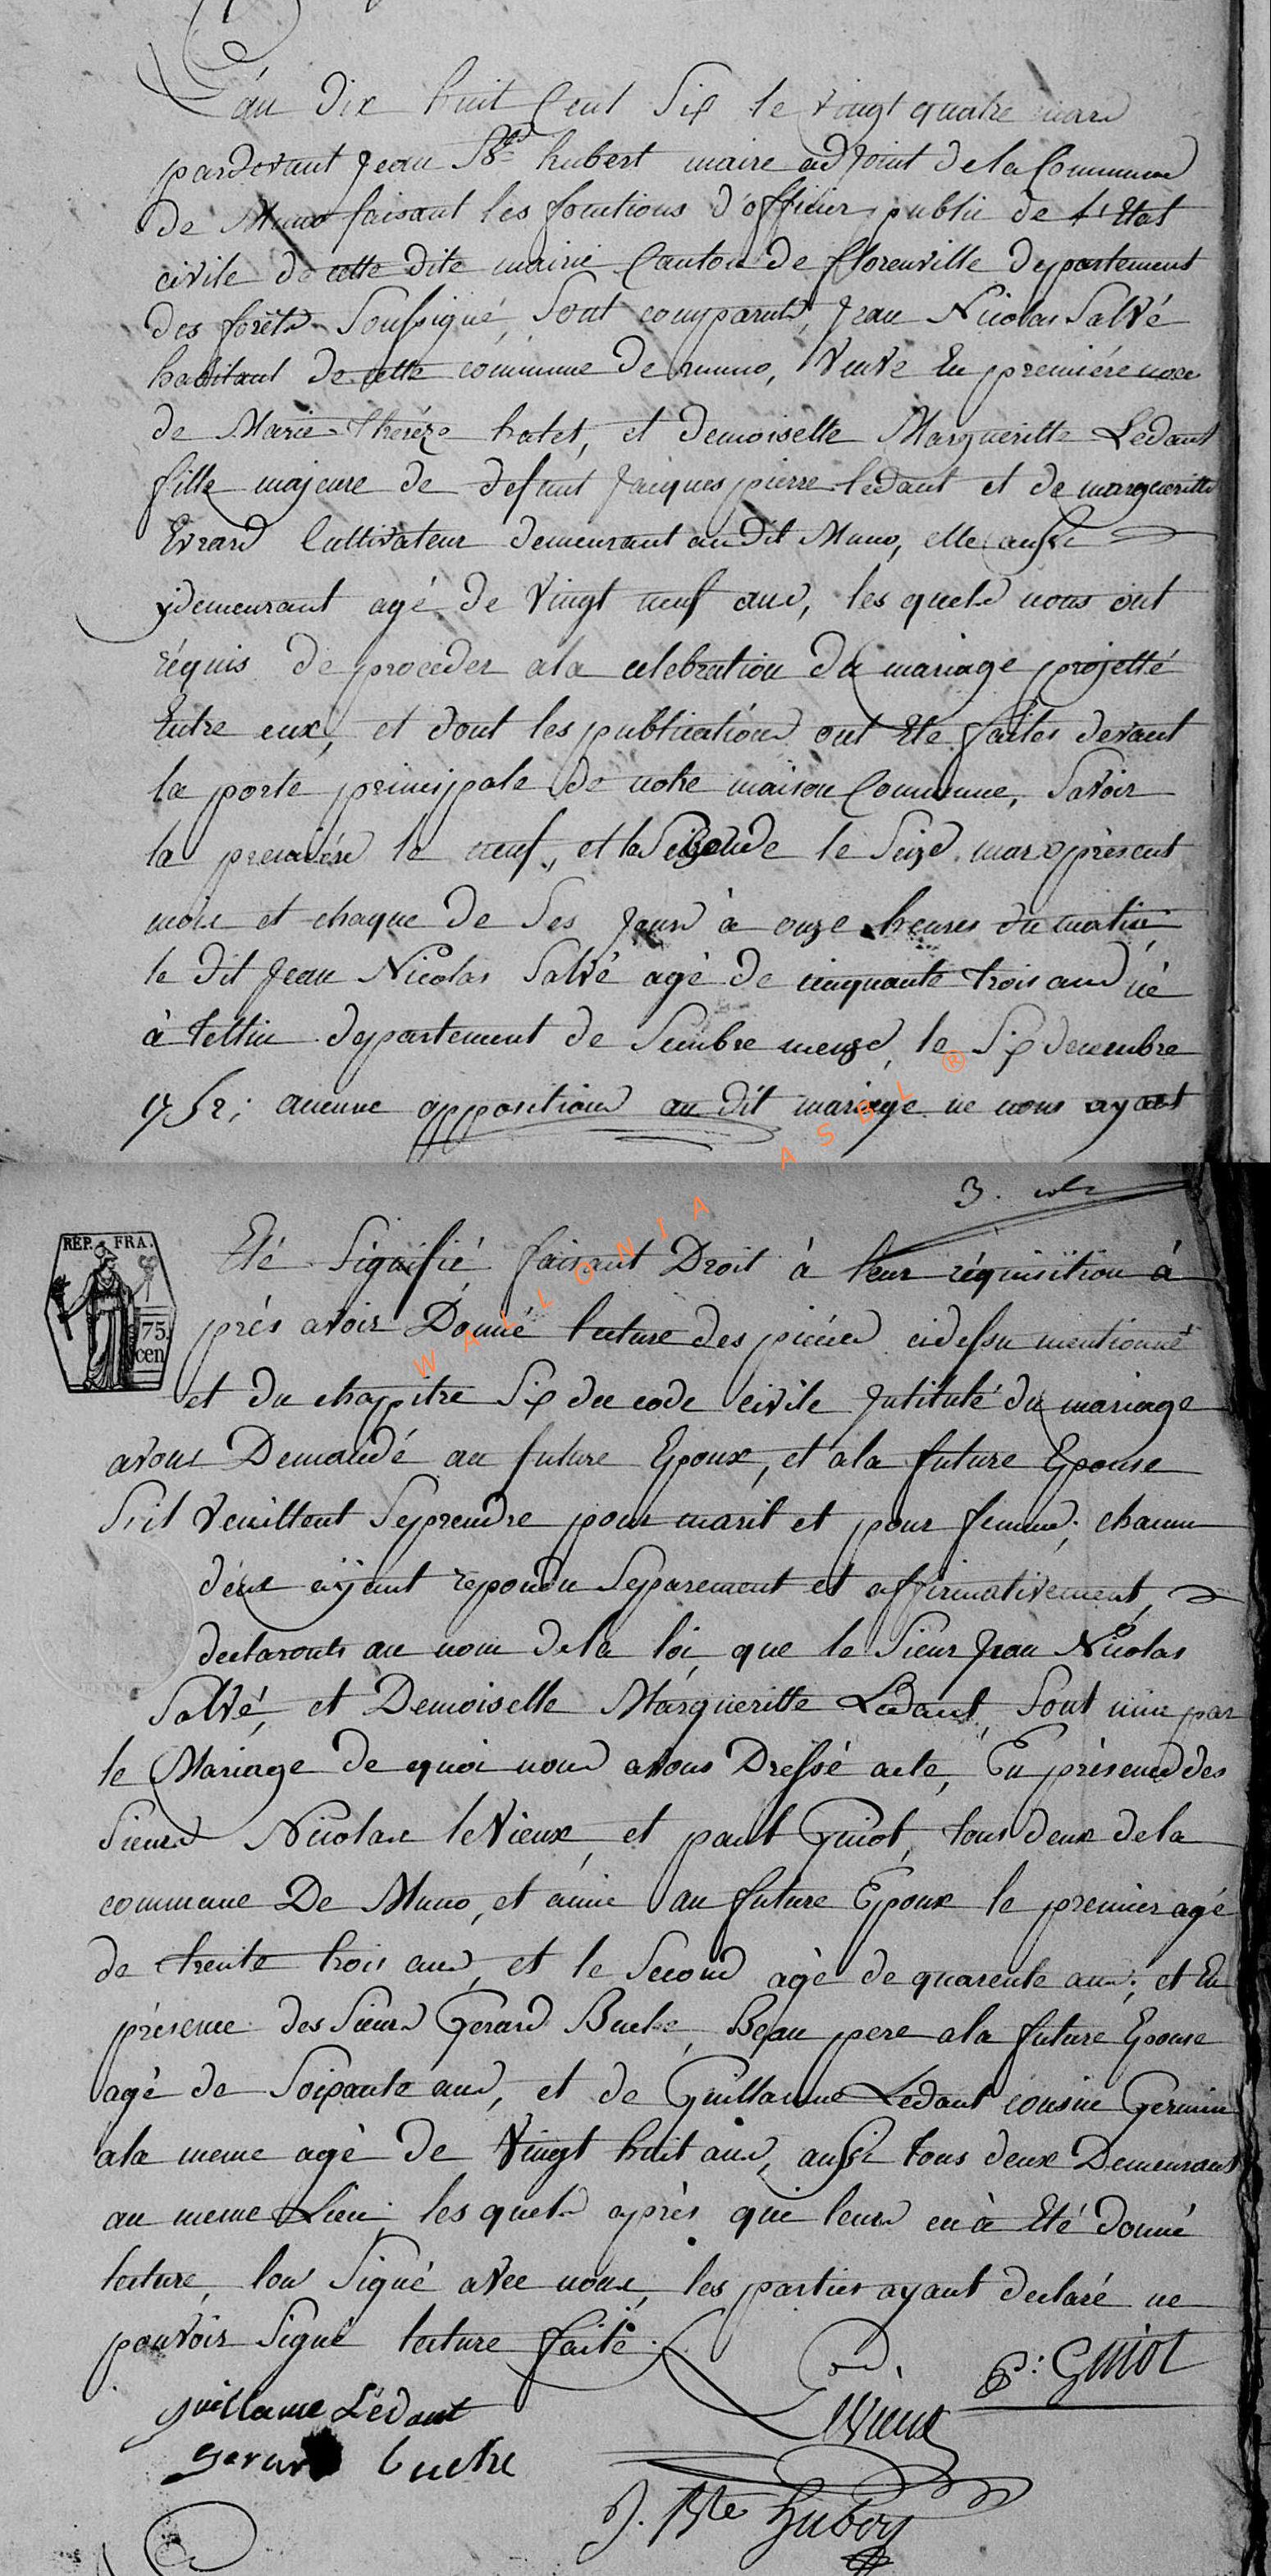 L'an dix huit Cent Six le vingt quatre mars
pardevant Jean Bte hubert maire adjoint de la Commune
de Muno faisant les fonctions d'officier public de L'Etat
civile de cette dite mairie Canton de florenville departement
des forêts Soussigné, Sont comparus, Jean Nicolas Salvé
habitant de cette commune de muno, Veuve En premiére noce
de Marie Thérèze hatet, et demoiselle Margueritte Ledant
fille majeure de defunt Jacques pierre ledant et de margueritte
Evrard Cultivateur demeurant au dit Muno, elle aussi
y demeurant agé de Vingt neuf ans, les quels nous ont
réquis de proceder a la celebration du mariage projetté
Entre eux, et dont les publications ont Ete faites devant
la porte principale de notre maison Commune, Savoir
la premiére le neuf, et la Seconde le Seize mars présent
mois et chaque de Ses Jours à onze heures du matin
le dit Jean Nicolas Salvé agé de cinquante trois ans né
à tellin departement de Sembre meuse, le Six decembre
1752; aucune oppositions au dit mariage ne nous ayant
3.
REP. FRA.
75 cen
Eté Signifié faisant Droit à leur réquisition à
prés avoir Donné lecture des piéces cidessu mentionné
et du chapitre Six du code civile Intitulé du mariage
avons Demandé au future Epoux, et a la future Epouse
Sil veuillent Se prendre pour marit et pour femme; chacun
deux aÿant repondu Separement et affirmativement,
declarons au nom de la loi, que le Sieur Jean Nicolas
Salvé, et Demoiselle Margueritte Ledant, Sont unie par
le Mariage de quoi nous avons Dressé acte, En présence des
Sieurs Nicolas leVieux, et paul Guiot, tous deux de la
commune De Muno, et amie au future Epoux le premier agé
de trente trois ans, et le Second agé de quarente ans; et En
présence des Sieurs Gerard Buche, Beau pere a la future Epouse
agé de Soixante ans, et de Guillaume Ledant cousin Germin
a la meme agé de Vingt huit ans, aussi tous deux Demeurant
au meme Lieu; les quels aprés que leurs en à Eté donné
lecture, lon Signé avec nous, les parties ayant declaré ne
pouvoir Signé lecture faite.
P: Guiot
guillaume Lédant
Levieux
gerard buche
J. Bte Hubert
WALLONIA ASBL ®